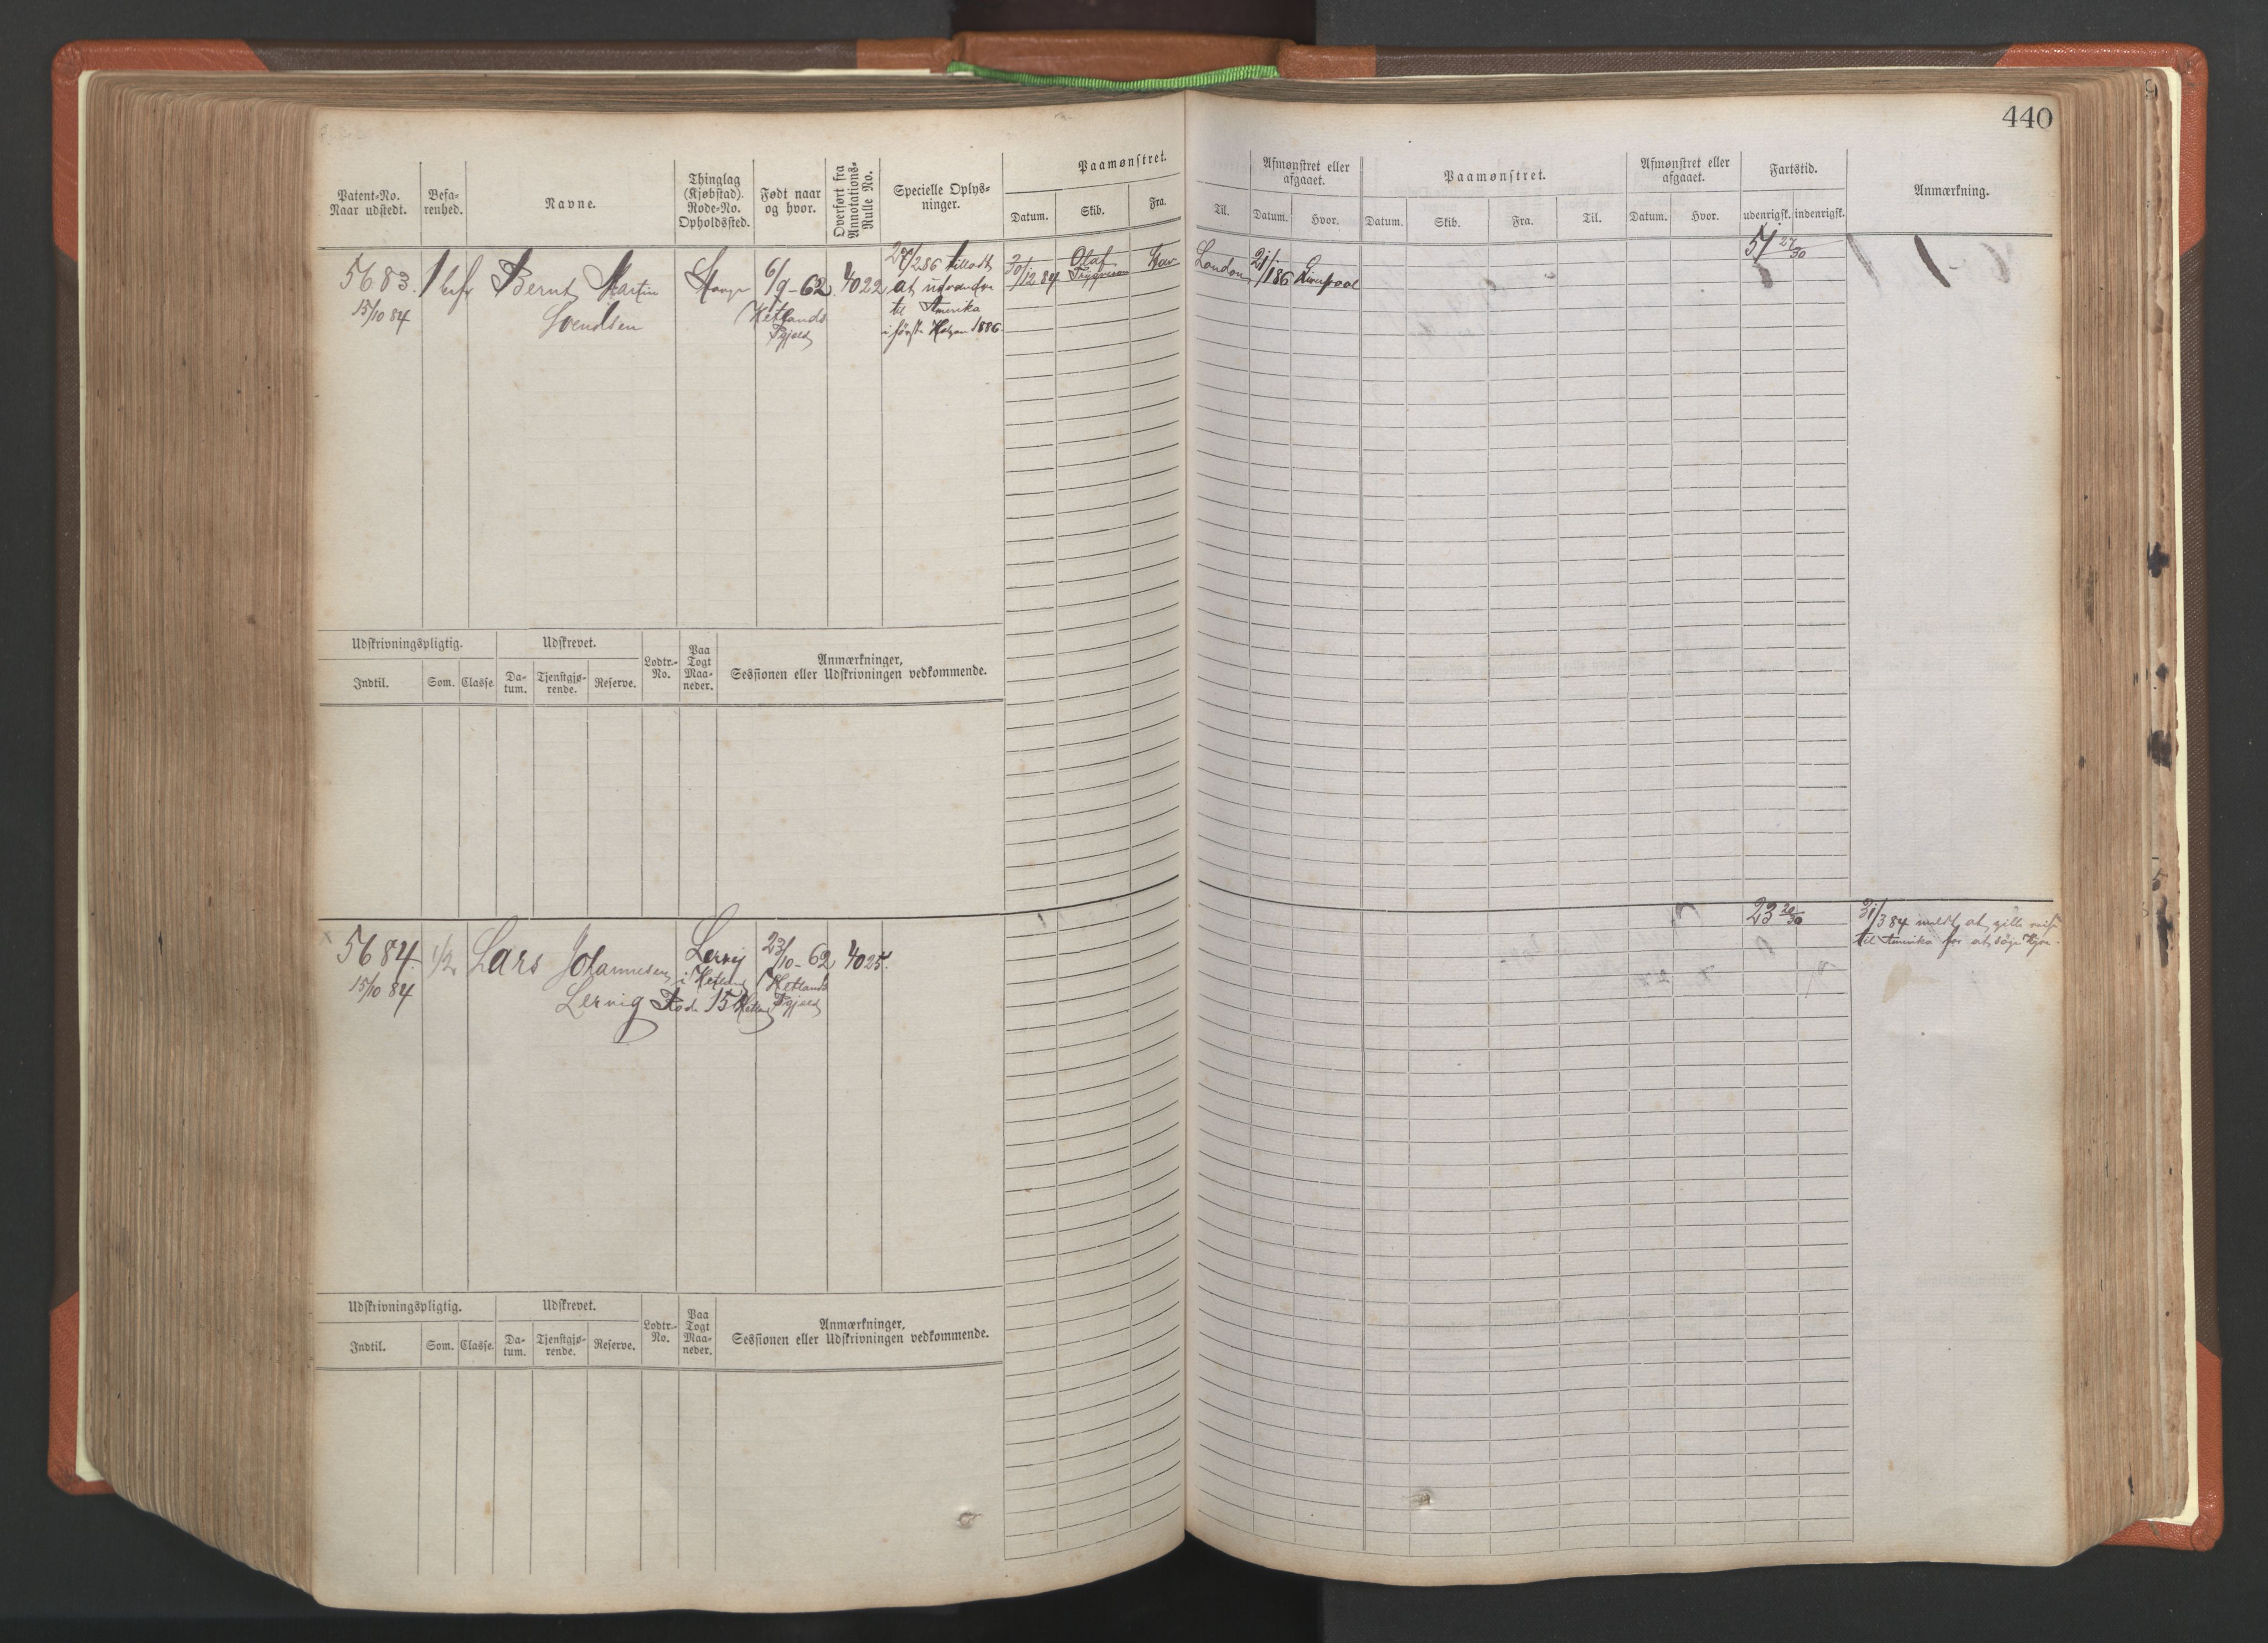 440
Patent-No.
Naar udstedt.
Befa-
renhed.
Navne.
Thinglag
(Kjøbstad).
Rode-No.
Opholdssted.
Født naar
og hvor.
Overført fra
Annotations-
Rulle No.
Specielle Oplys-
ninger.
Paamønstret.
Datum.
Skib.
Fra.
Til.
Afmønstret eller
afgaaet.
Datum.
Hvor.
Paamønstret.
Datum.
Skib.
Fra.
Til.
Afmønstret eller
afgaaet.
Datum.
Hvor.
Fartstid.
udenrigsk.
indenrigsk.
Anmærkning.
5683.
15/10 84
Bernt Martin
Svendsen
6/9-62
Hetlands
Pgjeld
4022
27/2 86 tilladt
at udvandre
til Amerika
i første Halvaar 1886
30/12 84
Olaf
Tryggvason
Stav
London
21/1 86
Liverpool
51 27/30
Udskrivningspligtig.
Indtil.
Som.
Classe.
Udskrevet.
Da-
tum.
Tjenstgjø-
rende.
Reserve.
Lodtr.-
No.
Paa
Togt
Maa-
neder.
Anmærkninger,
Sessionen eller Udskrivningen vedkommende.
5684.
15/10 84
1/2
Lars Johannesen
Lervig
Lervig
i Hetland
Rode 15 Hetland
23/10-62
Hetlands
Pgjeld
4025.
23 20/30
31/3 84 meldt at ville reise
til Amerika for at søge Hyre.
Udskrivningspligtig.
Indtil.
Som.
Classe.
Udskrevet.
Da-
tum.
Tjenstgjø-
rende.
Reserve.
Lodtr.-
No.
Paa
Togt
Maa-
neder.
Anmærkninger,
Sessionen eller Udskrivningen vedkommende.